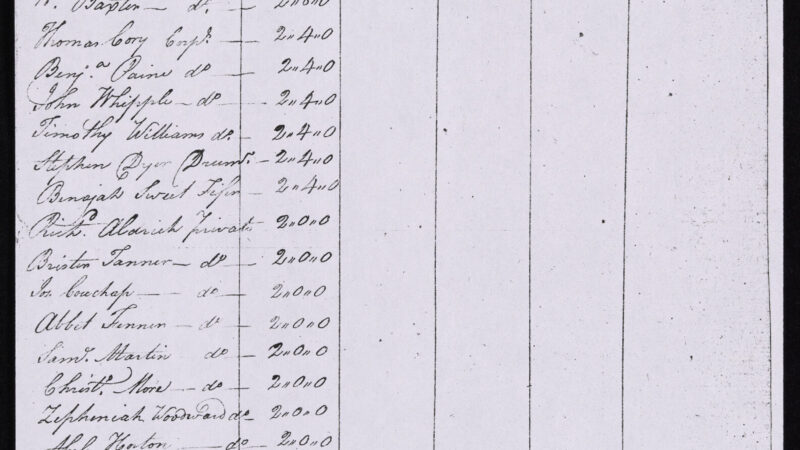 Baxter — do. 2"0"0
Thomas Cory Corpl. — 2"4"0
Benja. Paine do — 2"4"0
John Whipple — do — 2"4"0
Timothy Williams do. — 2"4"0
Stephen Dyer Drumr. — 2"4"0
Benajah Sweet Fifer — 2"4"0
Richd. Aldrich private 2"0"0
Brister Tanner — do — 2"0"0
Jos. Couchap — do — 2"0"0
Abbet Fenner — do — 2"0"0
Saml. Martin do — 2"0"0
Christr. More — do — 2"0"0
Zepheniah Woodward do — 2"0"0
Horton — do — 2"0"0